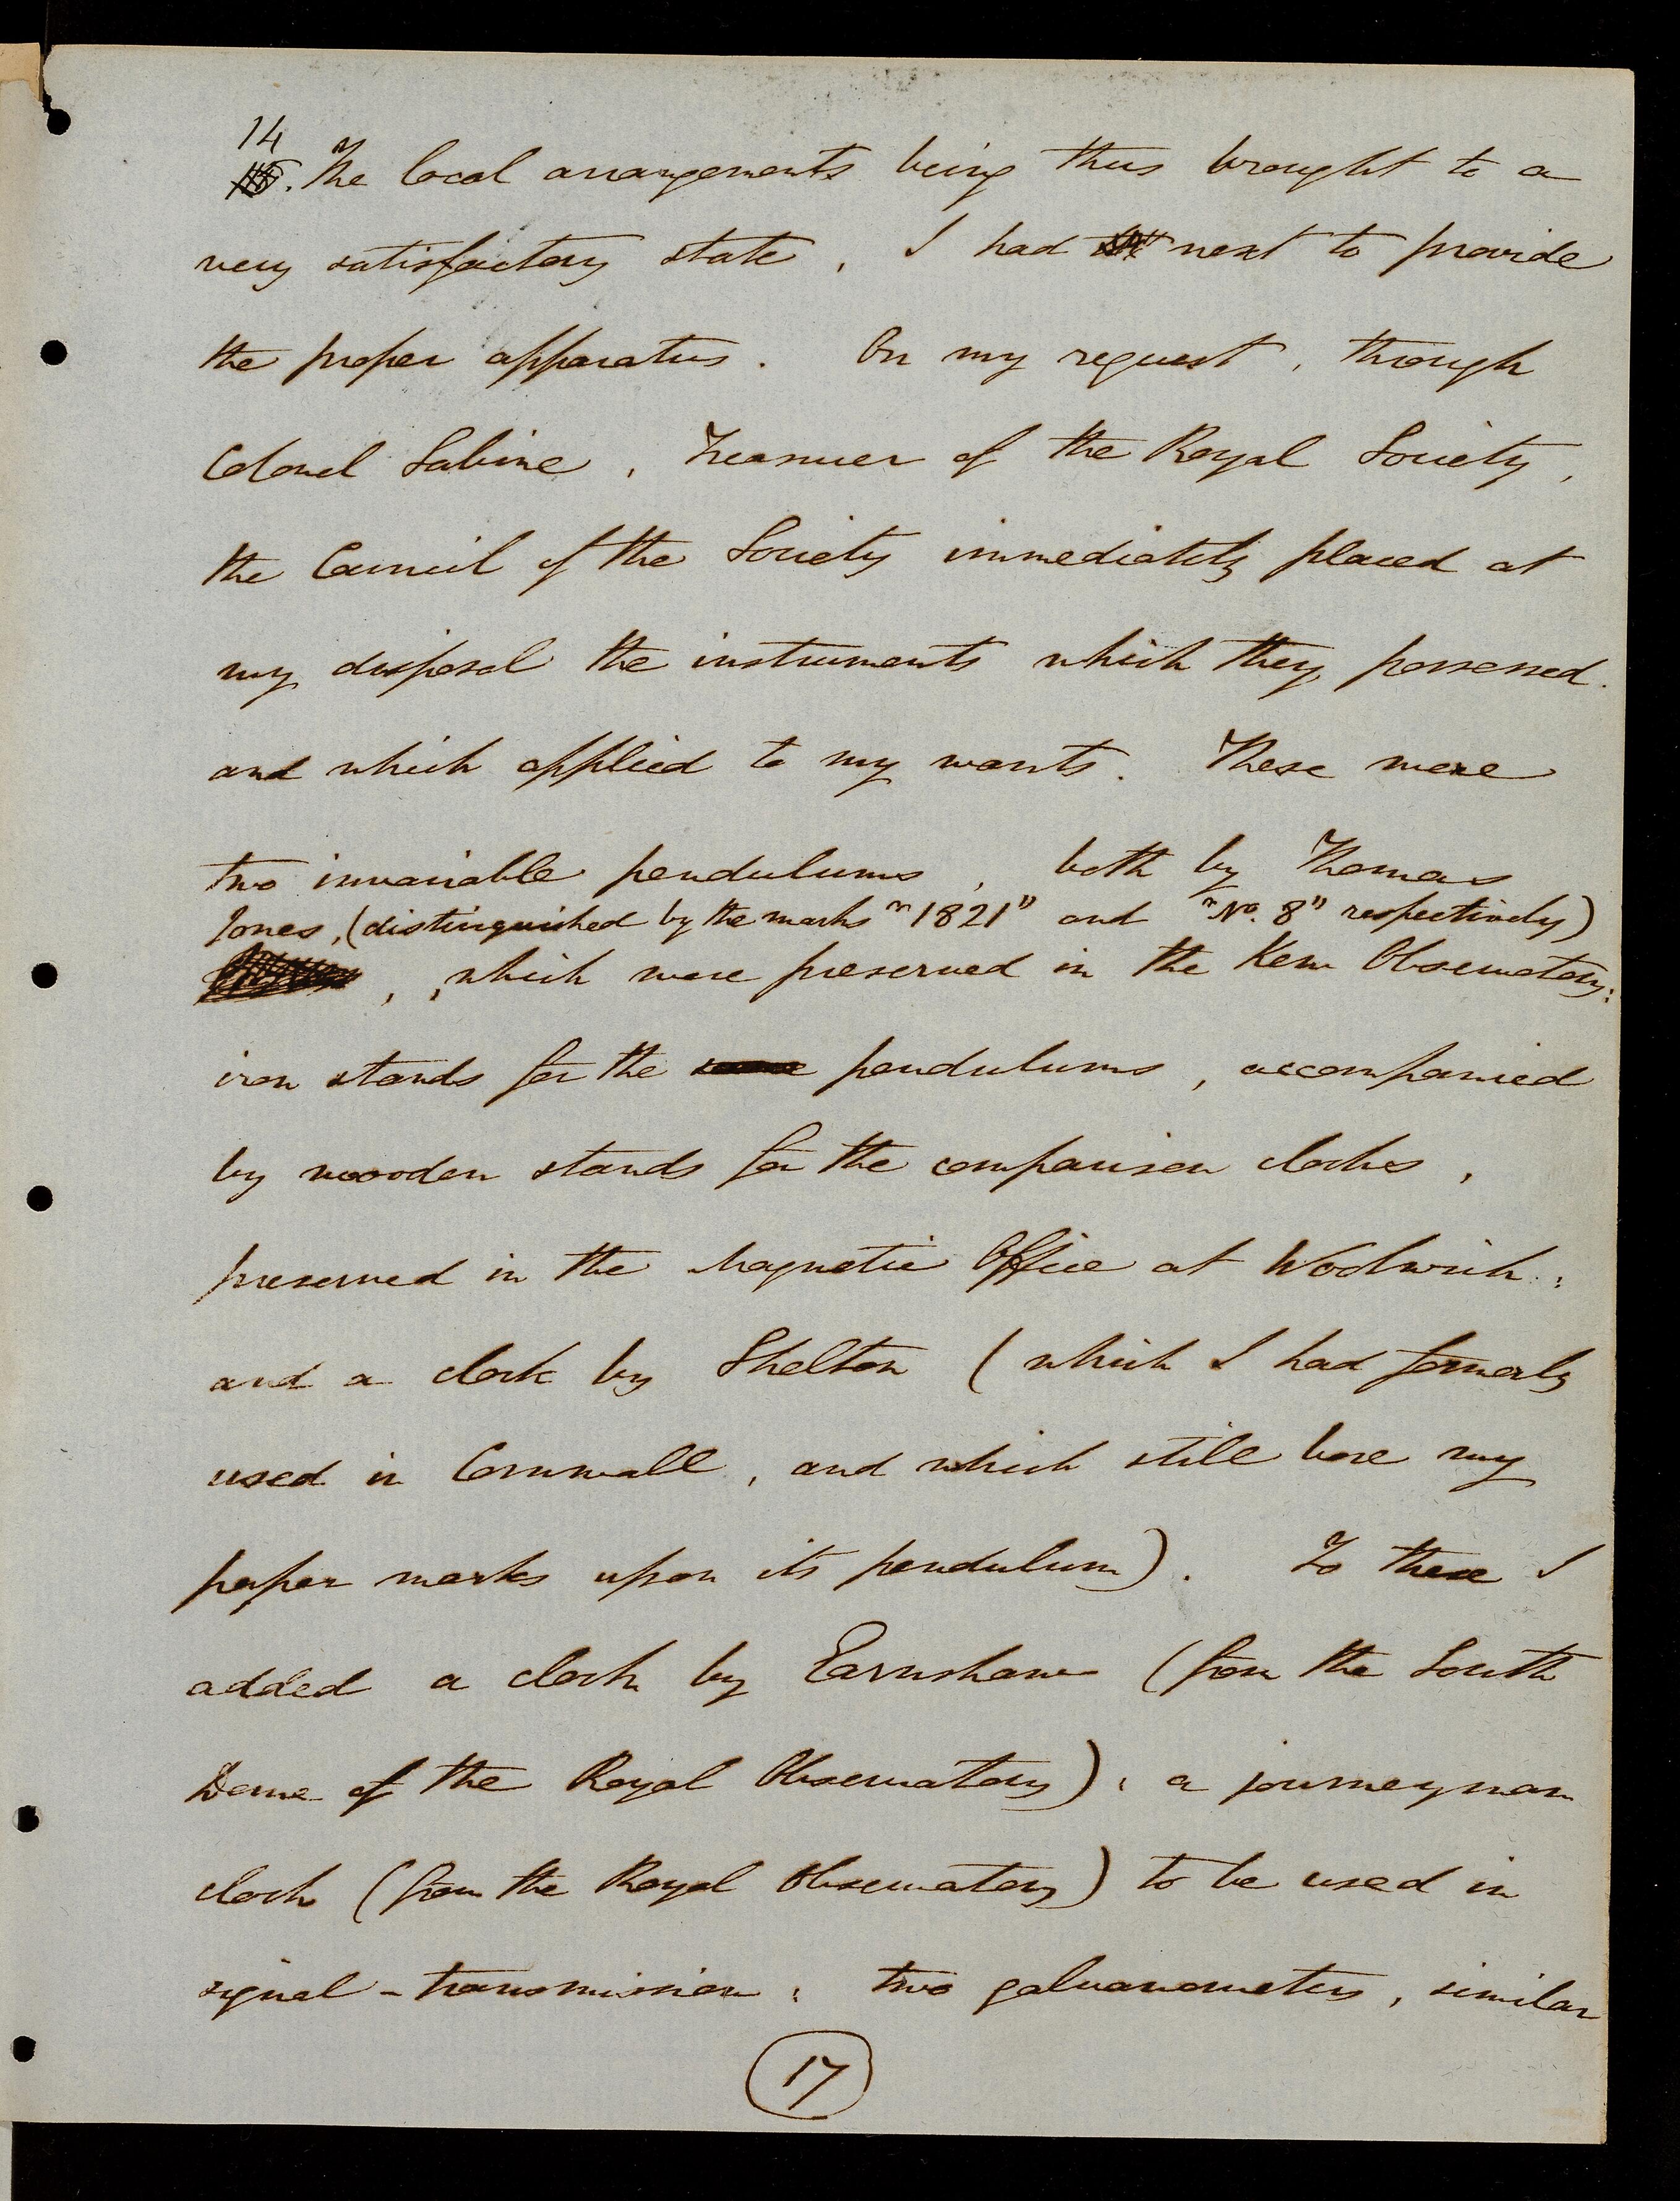 14
. The local arrangements being thus brought to a
very satisfactory state, I had next to provide
the proper apparatus. On my request, through
Colonel Sabine, Treasurer of the Royal Society,
the Council of the Society immediately placed at
my disposal the instruments which they possessed
and which applied to my wants. These were
two invariable pendulums, both by Thomas
Jones, (distinguished by the marks "1821" and "No. 8" respectively)
, which were preserved in the Kew Observatory:
iron stands for the pendulums, accompanied
by wooden stands for the comparison clocks,
preserved in the Magnetic Office at Woolwich:
and a clock by Shelton (which I had formerly
used in Cornwall, and which still bore my
paper marks upon its pendulum). To these I
added a clock by Earnshaw (from the South
Dome of the Royal Observatory): a journeyman
clock (from the Royal Observatory) to be used in
signal-transmission: two galvanometers, similar
17